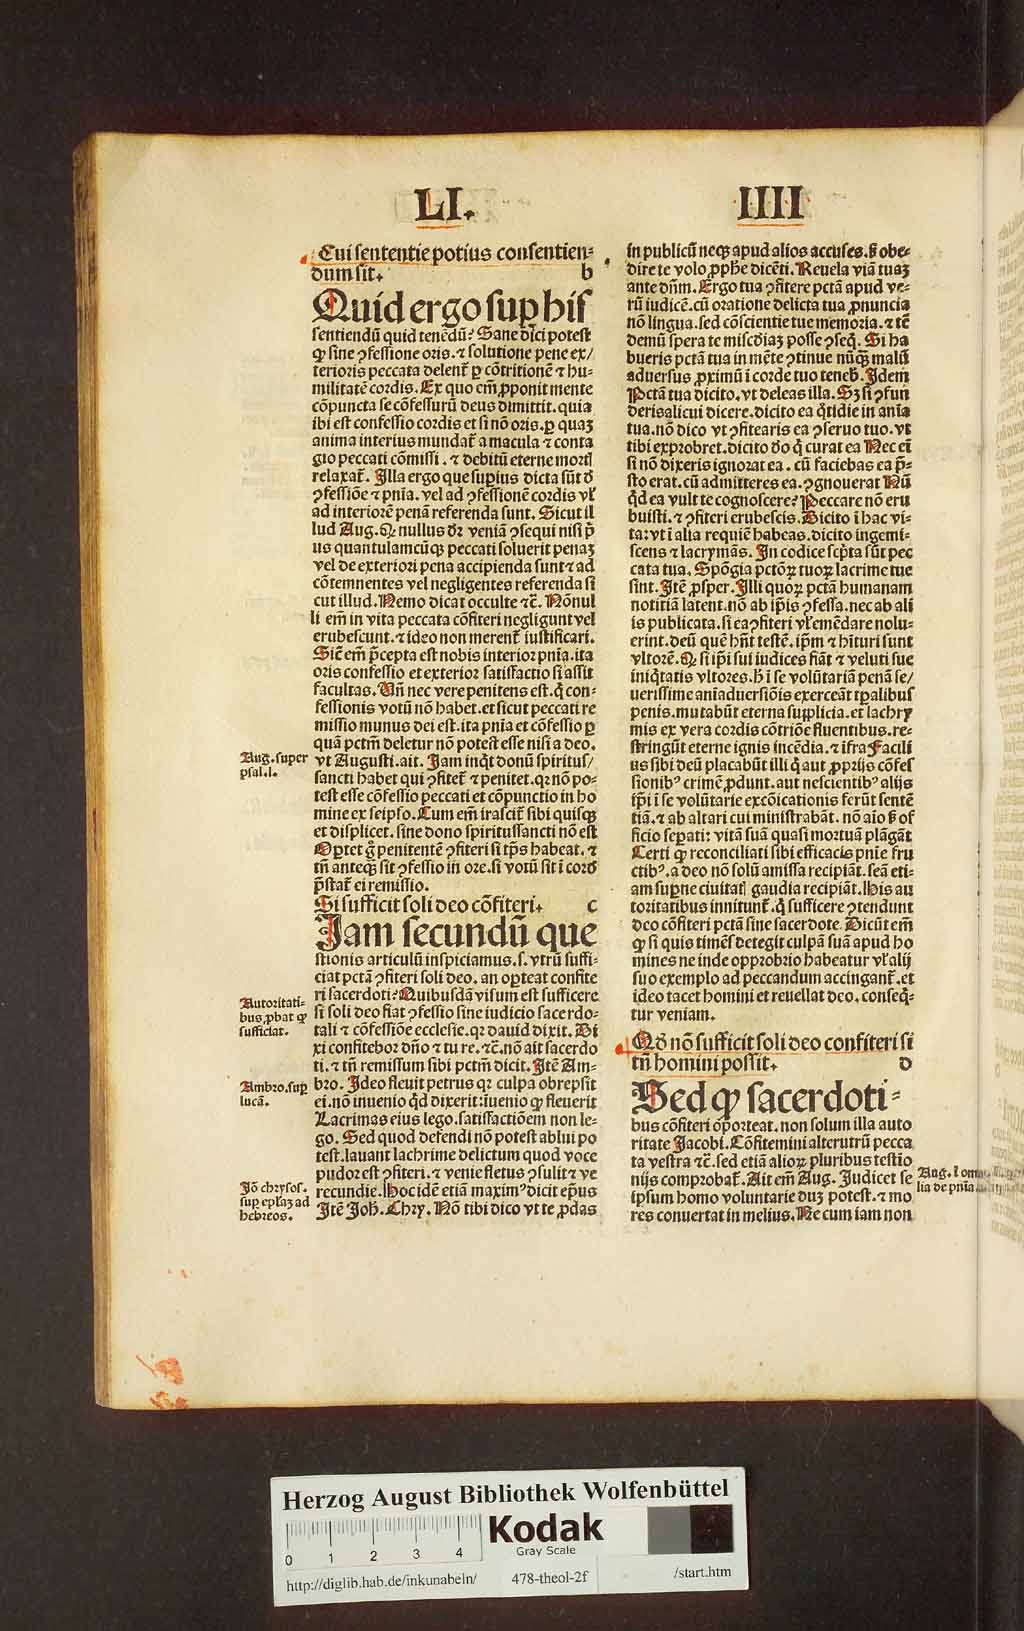 LI.
IIII
Cui sententie potius consentien-
dum sit. b
Quid ergo suꝑ his
sentiendū quid tenēdū? Sane dici potest
ꝙ sine ꝯfessione oris. ⁊ solutione pene ex/
terioris peccata delent᷑ ꝑ cōtritionē ⁊ hu-
militatē cordis. Ex quo em̄ ꝓponit mente
cōpuncta se cōfessurū deus dimittit. quia
ibi est confessio cordis et si nō oris. ꝑ quaꝫ
anima interius mundat᷑ a macula ⁊ conta
gio peccati cōmissi. ⁊ debitū eterne mortꝭ
relaxat᷑. Illa ergo que superius dicta sūt ð
ꝯfessiōe ⁊ pnīa. vel ad ꝯfessionē cordis vl̓
ad interiorē penā referenda sunt. Sicut il
lud Aug. Ꝙ nullus dr̄ veniā ꝯsequi nisi p̄
us quantulamcūqꝫ peccati soluerit penaꝫ
vel de exteriori pena accipienda sunt ⁊ ad
cōtemnentes vel negligentes referenda si
cut illud. Nemo dicat occulte ⁊c̄. Nōnul
li em̄ in vita peccata cōfiteri negligunt vel
erubescunt. ⁊ ideo non merent᷑ iustificari.
Sic̄ em̄ p̄cepta est nobis interior pnīa. ita
oris confessio et exterior satisfactio si assit
facultas. Vn̄ nec vere penitens est. q̇ con-
fessionis votū nō habet. et sicut peccati re
missio munus dei est. ita pnīa et cōfessio ꝑ
quā pctm̄ deletur nō potest esse nisi a deo.
vt Augusti. ait. Jam inq̇t donū spiritus/
sancti habet qui ꝯfitet᷑ ⁊ penitet. qꝛ nō po-
test esse cōfessio peccati et cōpunctio in ho
mine ex seipso. Cum em̄ irascit᷑ sibi quisqꝫ
et displicet. sine dono spiritussancti nō est
Oꝑtet g̊ penitentē ꝯfiteri si tp̄s habeat. ⁊
tn̄ anteqꝫ sit ꝯfessio in ore. si votū sit ī cord
p̄stat᷑ ei remissio.
Si sufficit soli deo cōfiteri. c
Jam secundū que
stionis articulū inspiciamus. s. vtrū suffi-
ciat pctā ꝯfiteri soli deo. an oꝑteat confite
ri sacerdoti? Quibusdā visum est sufficere
si soli deo fiat ꝯfessio sine iudicio sacerdo-
tali ⁊ cōfessiōe ecclesie. qꝛ dauid dixit. Di
xi confitebor dn̄o ⁊ tu re. ⁊c̄. nō ait sacerdo
ti. ⁊ tn̄ remissum sibi pctm̄ dicit. Itē Am-
bro. Ideo fleuit petrus qꝛ culpa obrepsit
ei. nō inuenio q̇d dixerit: inuenio ꝙ fleuerit
Lacrimas eius lego. satisfactiōem non le-
go. Sed quod defendi nō potest ablui po
test. lauant lachrime delictum quod voce
pudor est ꝯfiteri. ⁊ venie fletus ꝯsulit ⁊ ve
recundie. Hoc idē etiā maxim⁹ dicit ep̄us
Itē Joh̄. Chry. Nō tibi dico vt te ꝓdas
in publicū neqꝫ apud alios accuses. sꝫ obe-
dire te volo ꝓph̄e dicēti. Reuela viā tuaꝫ
ante dn̄m. Ergo tua ꝯfitere pctā apud ve-
rū iudicē. cū oratione delicta tua ꝓnuncia
nō lingua. sed cōscientie tue memoria. ⁊ tē
demū spera te misc̄diaꝫ posse ꝯseq̇. Si ha
bueris pctā tua in mēte ꝯtinue nūqꝫ malū
aduersus ꝓximū ī corde tuo teneb̄. Idem
Pctā tua dicito. vt deleas illa. Sꝫ si ꝯfun
deris alicui dicere. dicito ea q̇tidie in anīa
tua. nō dico vt ꝯfitearis ea ꝯseruo tuo. vt
tibi exprobret. dicito deo q̇ curat ea Nec ei
si nō dixeris ignorat ea. cū faciebas ea p̄-
sto erat. cū admitteres ea. ꝯgnouerat Nū
q̇d ea vult te cognoscere? Peccare nō eru
buisti. ⁊ ꝯfiteri erubescis. Dicito ī hac vi-
ta: vt ī alia requiē habeas. dicito ingemi-
scens ⁊ lacrymās. In codice scp̄ta sūt pec
cata tua. Spōgia pctōꝝ tuoꝝ lacrime tue
sint. Itē ꝓsper. Illi quoꝝ pctā humanam
notitiā latent. nō ab ip̄is ꝯfessa. nec ab ali
is publicata. si ea ꝯfiteri vl̓ emēdare nolu-
erint. deū quē hn̄t testē. ip̄m ⁊ hīturi sunt
vltorē. Ꝙ si ip̄i sui iudices fiāt ⁊ veluti sue
iniq̇tatis vltores. h̄ ī se volūtariā penā se/
uerissime anīaduersiōis exerceāt tꝑalibus
penis. mutabūt eterna supplicia. et lachry
mis ex vera cordis cōtriōe fluentibus. re-
stringūt eterne ignis incēdia. ⁊ ifra Facili
us sibi deū placabūt illi q̇ aut ꝓprijs cōfes
sionib⁹ crimē ꝓdunt. aut nescientib⁹ alijs
ip̄i ī se volūtarie excōicationis ferūt sentē
tiā. ⁊ ab altari cui ministrabāt. nō aīo sꝫ of
ficio seꝑati: vitā suā quasi mortuā plāgāt
Certi ꝙ reconciliati sibi efficacis pnīe fru
ctib⁹. a deo nō solū amissa recipiāt. seā eti-
am suꝑne ciuitatꝭ gaudia recipiāt. His au
toritatibus innitunt᷑. q̇ sufficere ꝯtendunt
deo cōfiteri pctā sine sacerdote. Dicūt em̄
ꝙ si quis timēs detegit culpā suā apud ho
mines ne inde opprobrio habeatur vl̓ alij
suo exemplo ad peccandum accingant᷑. et
ideo tacet homini et reuellat deo. conseq̇-
tur veniam.
Qð nō sufficit soli deo confiteri si
tn̄ homini possit. d
Sed ꝙ sacerdoti-
bus cōfiteri oporteat. non solum illa auto
ritate Jacobi. Cōfitemini alterutrū pecca
ta vestra ⁊c̄. sed etiā alioꝝ pluribus testio
nijs comprobat᷑. Ait em̄ Aug. Judicet se
ipsum homo voluntarie duꝫ potest. ⁊ mo
res conuertat in melius. Ne cum iam non
Aug. super
psal. l.
Autoritati-
bus ꝓbat ꝙ
sufficiat.
Ambro. suꝑ
lucā.
Jō chrysos.
suꝑ ep̄laꝫ ad
hebreos.
Aug. ī om
lia de pnīa
Herzog August Bibliothek Wolfenbüttel
Kodak
Gray Scale
0 1 2 3 4
http://diglib.hab.de/inkunabeln/ 478-theol-2f /start.htm